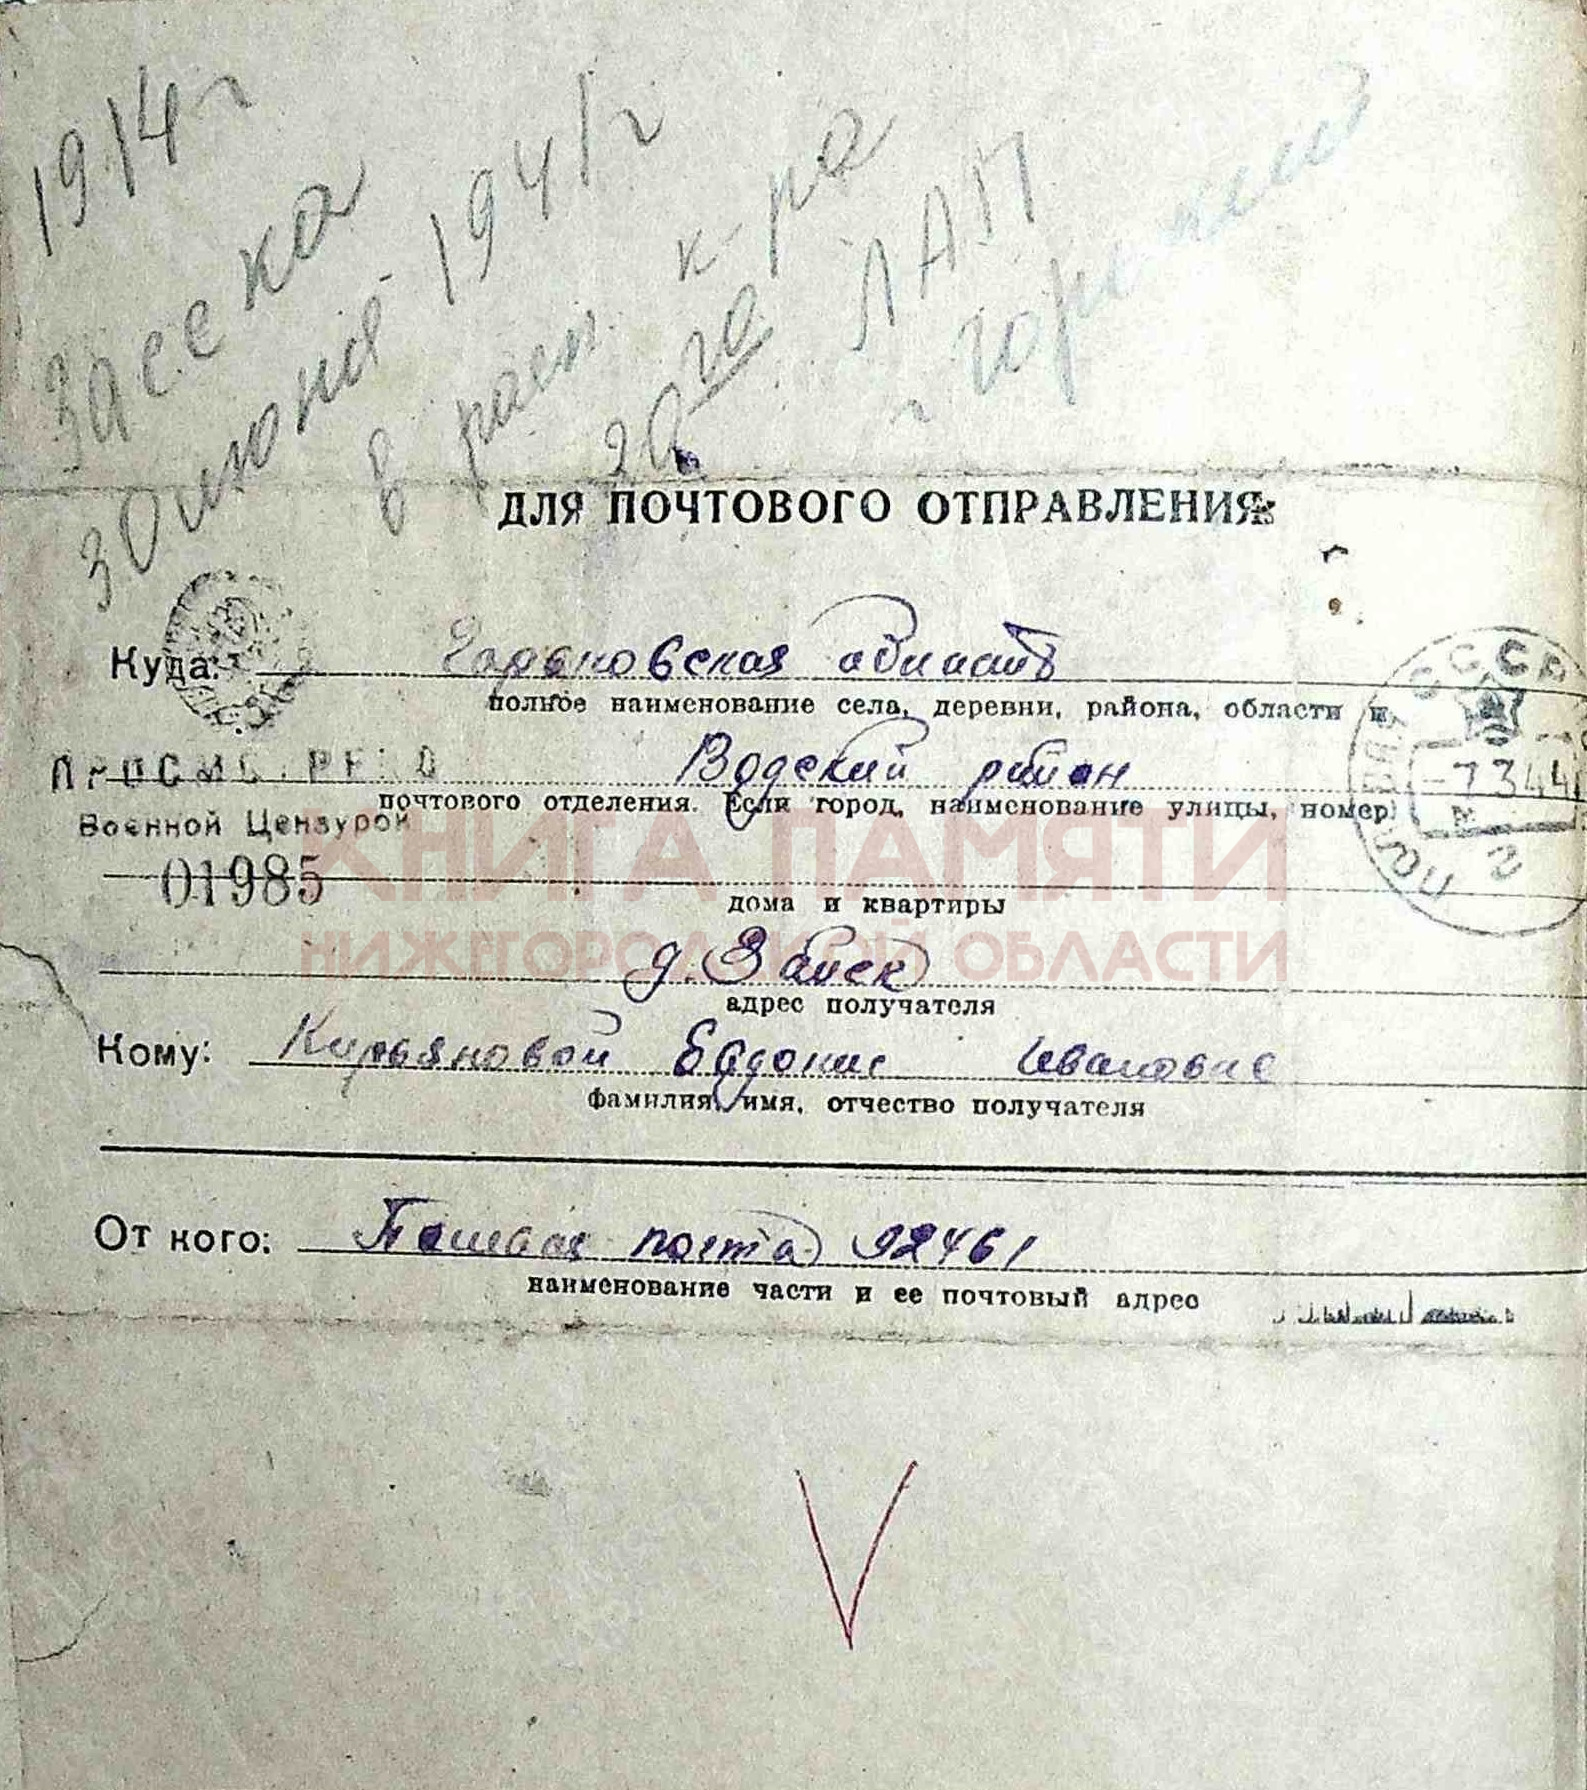 1914 г
Засека
30 июня 1941 г
в расп. к-ра
20го ЛАП
г Горький
ДЛЯ ПОЧТОВОГО ОТПРАВЛЕНИЯ
Куда: Горьковская область
полное наименование села, деревни, района, области и
Водский район
почтового отделения. Если город, наименование улицы, номер
Военной Цензурой
01985
дома и квартиры
д.
адрес получателя
Кому: Курьяновой Евдокие Ивановне
фамилия, имя, отчество получателя
От кого: Полевая почта 92461
наименование части и ее почтовый адрес
СССР
7 3 44
КНИГА ПАМЯТИ
НИЖЕГОРОДСКОЙ ОБЛАСТИ